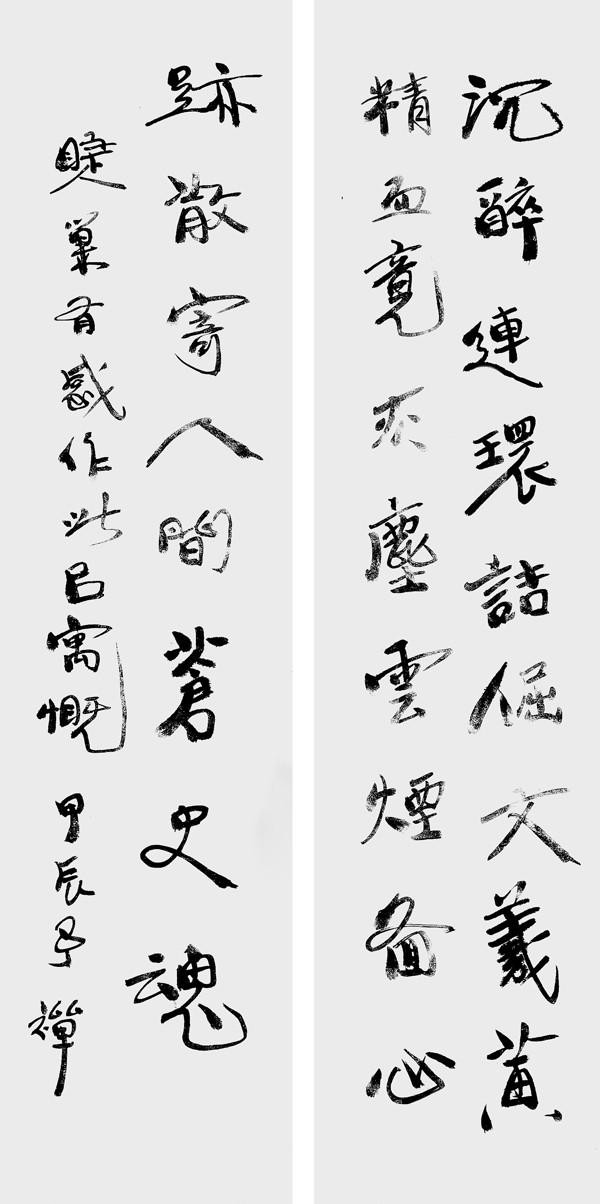 沉醉連環詰倔文羲黄
精血竟灰塵雲煙心
跡散寄人間蒼史魂
睫巢有感作此㠯寓慨 甲辰予禪